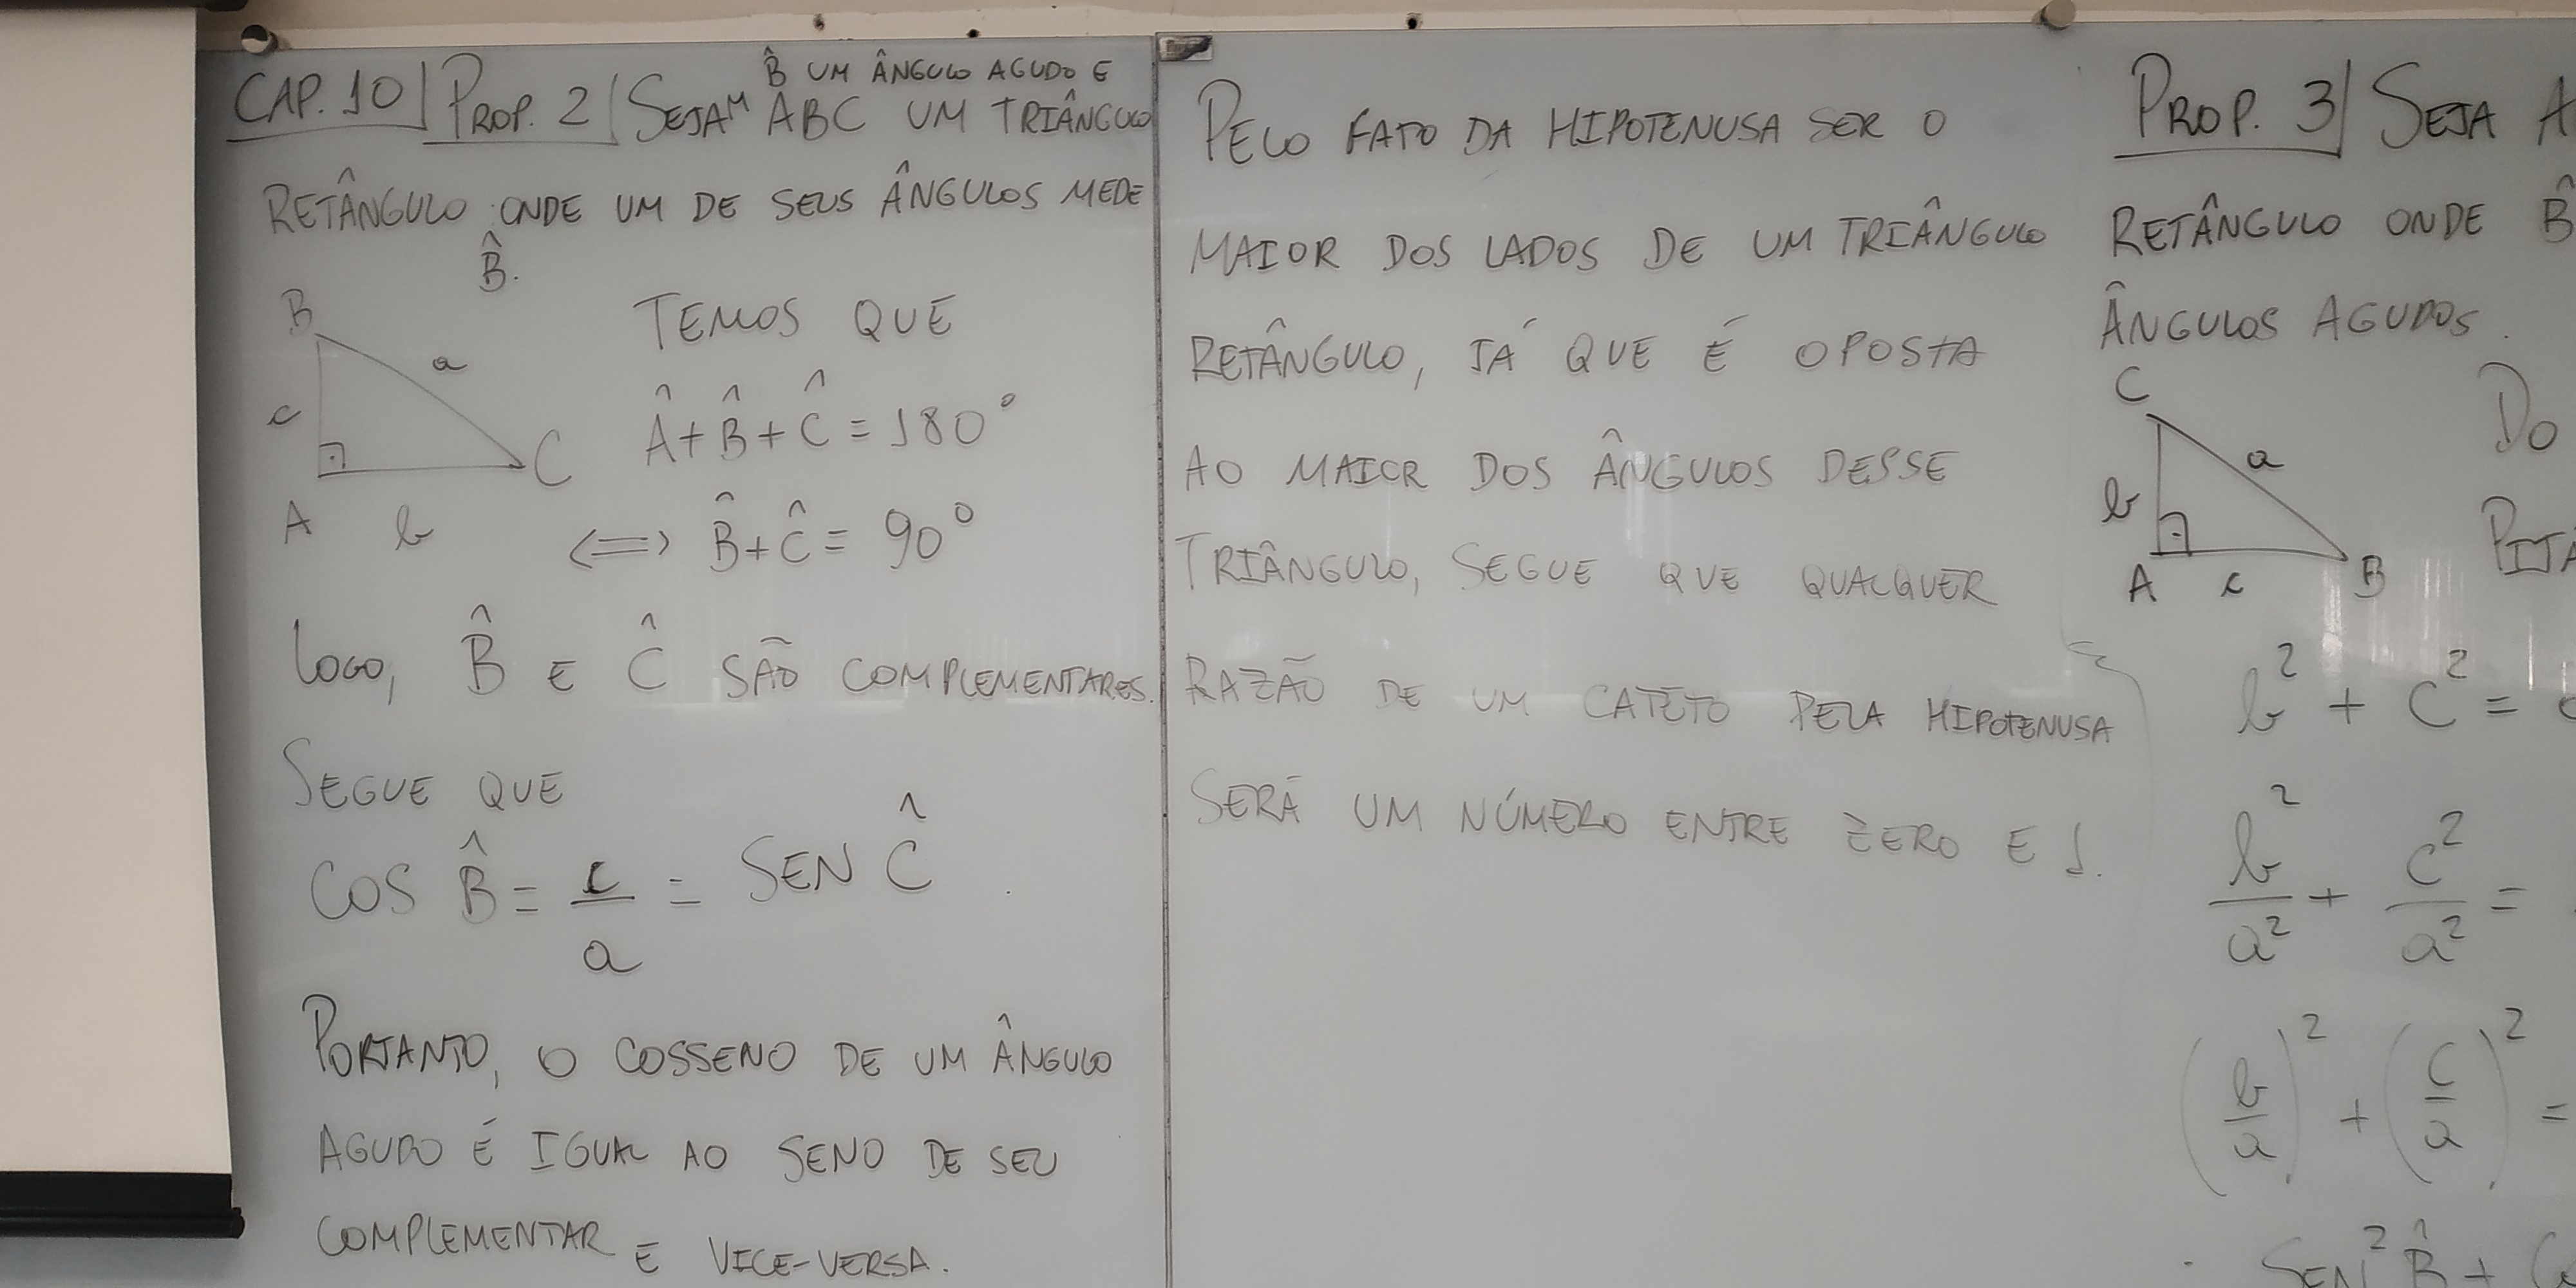 B̂ UM ÂNGULO AGUDO E
CAP. 10 | PROP. 2 | SEJAM ABC UM TRIÂNGULO
RETÂNGULO ONDE UM DE SEUS ÂNGULOS MEDE
B̂.
B
a
c
C
A
b
TEMOS QUE
Â+B̂+Ĉ = 180°
⟺ B̂+Ĉ = 90°
LOGO, B̂ E Ĉ SÃO COMPLEMENTARES.
SEGUE QUE
COS B̂ = c/a = SEN Ĉ
PORTANTO, O COSSENO DE UM ÂNGULO
AGUDO É IGUAL AO SENO DE SEU
COMPLEMENTAR E VICE-VERSA.
PELO FATO DA HIPOTENUSA SER O
MAIOR DOS LADOS DE UM TRIÂNGULO
RETÂNGULO, JÁ QUE É OPOSTA
AO MAIOR DOS ÂNGULOS DESSE
TRIÂNGULO, SEGUE QUE QUALQUER
RAZÃO DE UM CATETO PELA HIPOTENUSA
SERÁ UM NÚMERO ENTRE ZERO E 1.
PROP. 3 | SEJA A
RETÂNGULO ONDE B̂
ÂNGULOS AGUDOS.
C
a
b
A
c
B
DO
PITÁ
b² + c² =
b²/a² + c²/a² =
(b/a)² + (c/a)² =
SEN² B̂ +